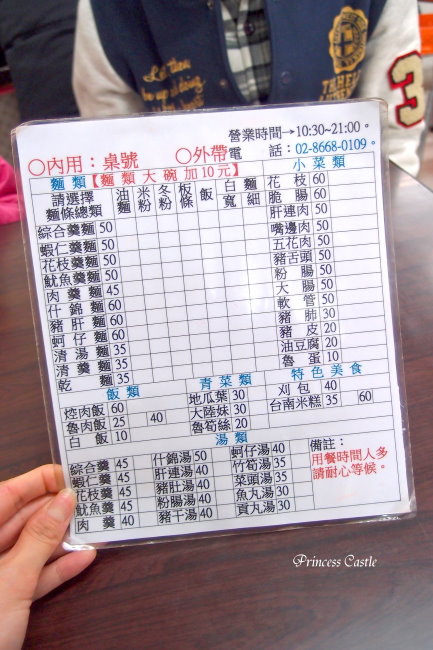 Let them
營業時間→10:30~21:00。
○內用：桌號 ○外帶 電 話：02-8668-0109。
麵類【麵類大碗加10元】 小菜類
請選擇麵條總類 油麵 米粉 冬粉 板條 飯 白寬 麵細 花枝 60
脆腸 60
綜合羹麵 50 肝連肉 50
蝦仁羹麵 50 嘴邊肉 50
花枝羹麵 50 五花肉 50
魷魚羹麵 50 豬舌頭 50
肉羹麵 45 粉腸 50
什錦麵 60 大腸 50
豬肝麵 60 軟管 50
蚵仔麵 60 豬肺 30
清湯麵 35 豬皮 20
清羹麵 35 油豆腐 20
乾麵 35 魯蛋 10
飯類 青菜類 特色美食
焢肉飯 60 地瓜葉 30 刈包 40
魯肉飯 25 40 大陸妹 30 台南米糕 35 60
白飯 10 魯筍絲 20
湯類
綜合羹 45 什錦湯 50 蚵仔湯 40 備註：
蝦仁羹 45 肝連湯 40 竹筍湯 35 用餐時間人多
花枝羹 45 豬肚湯 40 菜頭湯 35 請耐心等候。
魷魚羹 45 粉腸湯 40 魚丸湯 30
肉羹 40 豬干湯 40 貢丸湯 30
3
Princess Castle